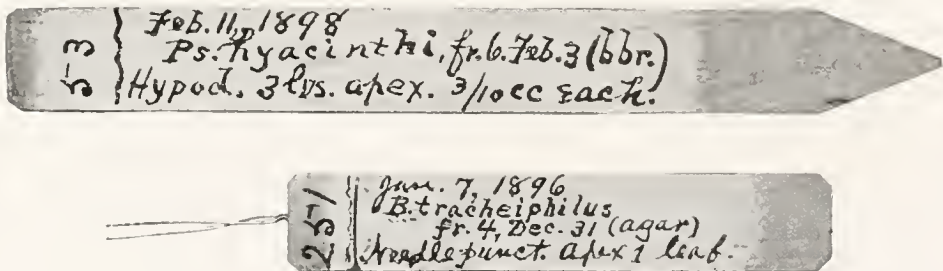 53
Feb. 11, 1898
Ps. hyacinthi, fr. 6. Feb. 3 (bbr.)
Hypod. 3 lvs. apex. 3/10 cc each.
251
Jan. 7, 1896
B. tracheiphilus
fr. 4, Dec. 31 (agar)
Needle punct. apex 1 leaf.